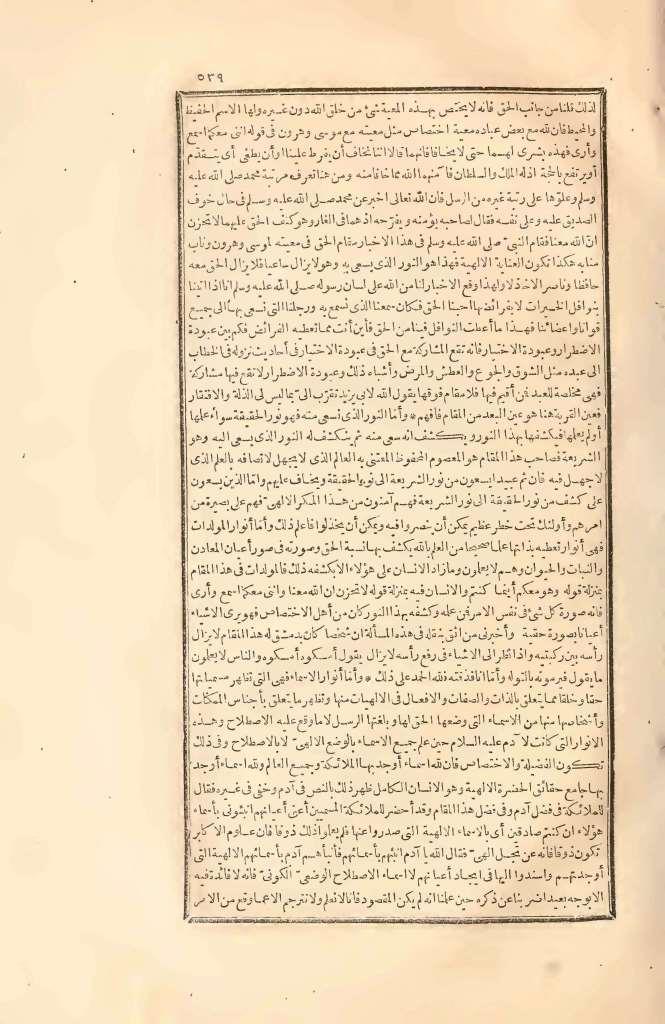 ٥٣٩
لذلك قلنا من جانب الحق فانه لا يختص بهذه المعية شئ من خلق الله دون غيره ولها الاسم الحفيظ
والمحيط فان لله مع بعض عباده معية اختصاص مثل معيته مع موسى وهرون فى قوله اننى معكما أسمع
وأرى فهذه بشرى لهما حتى لا يخافا فانهما قالا اننا نخاف أن يفرط علينا أو أن يطغى أى يتقدم
أو يرتفع بالحجة اذ له الملك والسلطان فآمنهما الله مما خافا منه ومن هنا تعرف مرتبة محمد صلى الله عليه
وسلم وعلوها على رتبة غيره من الرسل فان الله تعالى اخبر عن محمد صلى الله عليه وسلم فى حال خوف
الصديق عليه وعلى نفسه فقال لصاحبه يؤمنه ويفرحه اذ هما فى الغار وهو كنف الحق عليهما لا تحزن
ان الله معنا فقام النبي صلى الله عليه وسلم فى هذا الاخبار مقام الحق فى معيته لموسى وهرون وناب
منابه هكذا تكون العناية الالهية فهذا هو النور الذى يسعى به وهو لا يزال ساعيا فلا يزال الحق معه
حافظا وناصرا لا خاذلا ولهذا وقع الاخبار لنا من الله على لسان رسوله صلى الله عليه وسلم انا اذا اتينا
بنوافل الخيرات لا بفرائضها احبنا الحق فكان سمعنا الذى نسمع به ورجلنا التى نسعى بها الى جميع
قوانا واعضائنا فهذا ما أعطت النوافل فينا من الحق فأين أنت مما تعطيه الفرائض فكم بين عبودة
الاضطرار وعبودة الاختيار فانه تقع المشاركة مع الحق فى عبودة الاختيار فى أحاديث نزوله فى الخطاب
الى عبده مثل الشوق والجوع والعطش والمرض وأشباه ذلك وعبودة الاضطرار لا تقع فيها مشاركة
فهى مخلصة للعبد فن أقيم فيها فلا مقام فوقها يقول الله لابى يزيد تقرّب الىّ بما ليس لى الذلة والافتقار
فعين القربة هنا هو عين البعد من المقام فافهم * وأما النور الذى تسعى منه فهو نور الحقيقة سواء علمها
أو لم يعلمها فيكشفها بهذا النور ويكشف انه سعى منه ثم ينكشف له النور الذى يسعى اليه وهو
الشريعة فصاحب هذا المقام هو المعصوم المحفوظ المعتنى به العالم الذى لا يجهل لاتصافه بالعلم الذى
لا جهل فيه فان ثم عبيدا يسعون من نور الشريعة الى نور الحقيقة ويخاف عليهم واما الذين يسعون
على كشف من نور الحقيقة الى نور الشريعة فهم آمنون من هذا المكر الالهى فهم على بصيرة من
امرهم وأولئك تحت خطر عظيم يمكن أن ينصروا فيه ويمكن أن يخذلوا فاعلم ذلك وأما أنوار المولدات
فهى أنوار تعطيه بذاتها علما صحيحا من العلم بالله يكشف بها نسبة الحق وصورته فى صور أعيان المعادن
والنبات والحيوان وهم لا يعلمون وما زاد الانسان على هؤلاء الا بكشفه ذلك فالمولدات فى هذا المقام
بمنزلة قوله وهو معكم أينما كنتم والانسان فيه بمنزلة قوله لا تحزن ان الله معنا واننى معكما أسمع وأرى
فانه صورة كل شئ فى نفس الامر فن علمه وكشفه بهذا النور كان من أهل الاختصاص فهو يرى الاشياء
أعيانا بصورة حقية وأخبرنى من اثق بنقله فى هذه المسألة ان شخصا كان بدمشق له هذا المقام لا يزال
رأسه بين ركبتيه واذا نظر الى الاشياء فى رفع رأسه لا يزال يقول أمسكوه أمسكوه والناس لا يعلمون
ما يقول فيرمونه بالتوله وأما انا فذقته فلله الحمد على ذلك * وأما أنوار الاسماء فهى التى تظهر مسمياتها
حقا وخلقا مما يتعلق بالذات والصفات والافعال فى الالهيات منها وتظهر ما يتعلق بأجناس الممكنات
وأشخاصها منها من الاسماء التى وضعها الحق لها وبلغتها الرسل لا ما وقع عليه الاصطلاح وهذه
الانوار التى كانت لآدم عليه السلام حين علم جميع الاسماء بالوضع الالهى لا بالاصطلاح وفى ذلك
تكون الفضيلة والاختصاص فان لله اسماء أوجد بها الملائكة وجميع العالم ولله اسماء أوجد
بها جامع حقائق الحضرة الالهية وهو الانسان الكامل ظهر ذلك بالنص فى آدم وخفى فى غيره فقال
للملائكة فى فضل آدم وفى فضل هذا المقام وقد أحضر للملائكة المسمين أعنى أعيانهم انبئونى بأسماء
هؤلاء ان كنتم صادقين أى بالاسماء الالهية التى صدروا عنها فلم يعلموا ذلك ذوقا فان علوم الاكابر
تكون ذوقا فانه عن تجل الهى فقال الله يا آدم انبئهم بأسمائهم فأنبأهم آدم بأسمائهم الالهية التى
أوجدتهم واسندوا اليها فى ايجاد أعيانهم لا اسماء الاصطلاح الوضعى الكونى فانه لا فائدة فيه
الا بوجه بعيد اضربنا عن ذكره حين علمنا انه لم يكن المقصود فانا لا نعلم ولا نترجم الا عما وقع من الامر